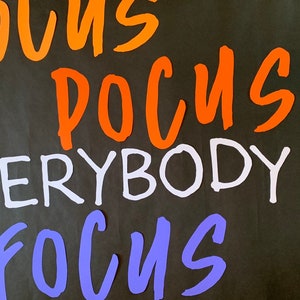 OCUS
POCUS
ERYBODY
FOCUS